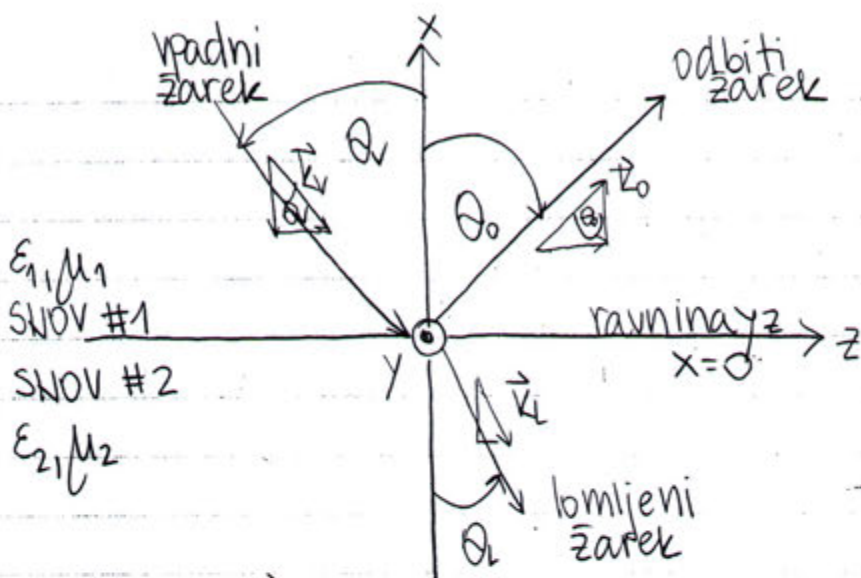 x
vpadni
žarek
odbiti
žarek
Θv
k⃗v
Θv
Θo
k⃗o
Θo
ε1, μ1
SNOV #1
ravnina yz
x=0
z
y
SNOV #2
ε2, μ2
k⃗L
lomljeni
žarek
ΘL